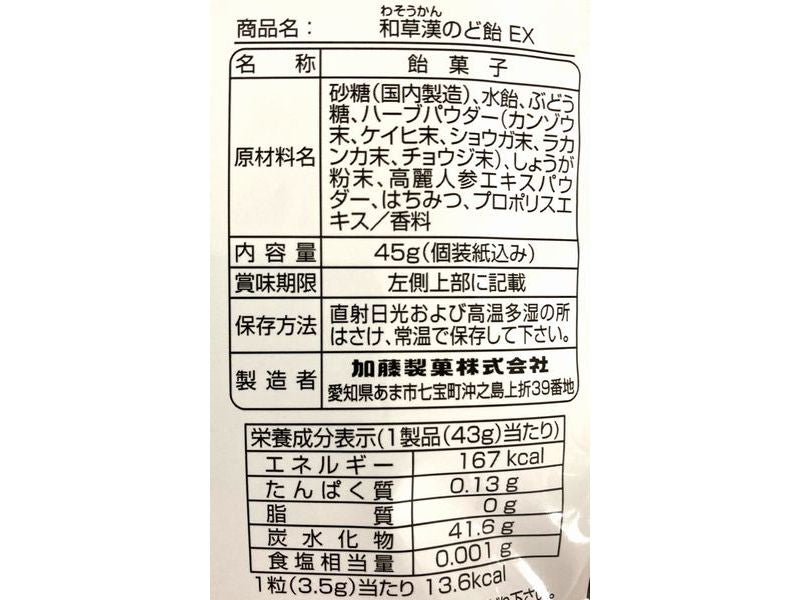 わそうかん
商品名： 和草漢のど飴 EX
名称 飴菓子
原材料名 砂糖（国内製造）、水飴、ぶどう
糖、ハーブパウダー（カンゾウ
末、ケイヒ末、ショウガ末、ラカ
ンカ末、チョウジ末）、しょうが
粉末、高麗人参エキスパウ
ダー、はちみつ、プロポリスエ
キス／香料
内容量 45g（個装紙込み）
賞味期限 左側上部に記載
保存方法 直射日光および高温多湿の所
はさけ、常温で保存して下さい。
製造者 加藤製菓株式会社
愛知県あま市七宝町沖之島上折39番地
栄養成分表示（1製品（43g）当たり）
エネルギー 167 kcal
たんぱく質 0.13 g
脂質 0 g
炭水化物 41.6 g
食塩相当量 0.001 g
1粒（3.5g）当たり 13.6kcal
下さい。